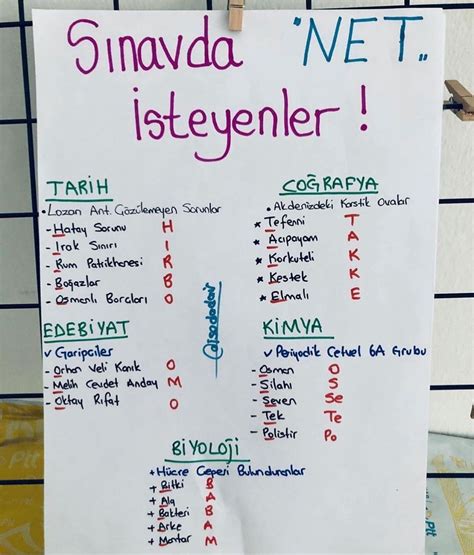 Sınavda "NET"
İsteyenler !
TARİH
. Lozan Ant. Çözülemeyen Sorunlar
- Hatay Sorunu H
- Irak Sınırı I
- Rum Patrikhanesi R
- Boğazlar B
- Osmanlı Borcları O
COĞRAFYA
. Akdenizdeki Karstik Ovalar
* Tefenni T
* Acıpayam A
* Korkuteli K
* Kestek K
* Elmalı E
EDEBİYAT
✓ Garipciler
- Orhan Veli Kanık O
- Melih Cevdet Anday M
- Oktay Rıfat O
KİMYA
✓ Periyodik Cetvel 6A Grubu
- Osman O
- Silahı S
- Seven Se
- Tek Te
- Polistir Po
BİYOLOJİ
+ Hücre Ceperi Bulunduranlar
+ Bitki B
+ Alg A
+ Bakteri B
+ Arke A
+ Mantar M